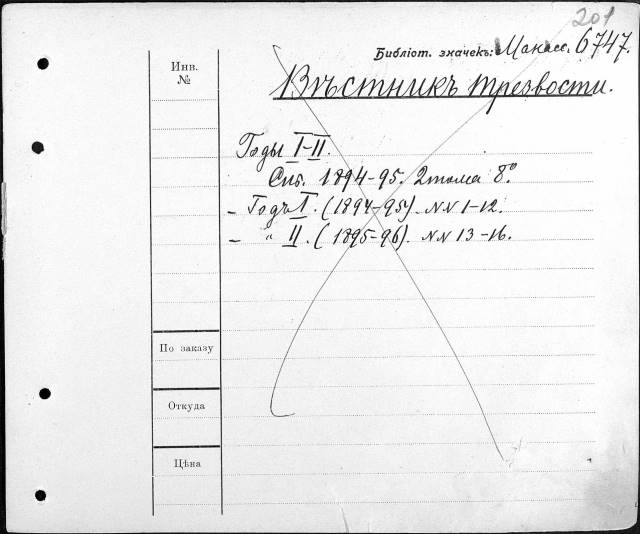 201
Библіот. значекъ: Манасс. 6747.
Инв. №
Вѣстникъ трезвости.
Годы I-II.
Спб. 1894-95. 2 тома 8°.
- Годъ I. (1894-95). NN 1-12.
- " II. (1895-96). NN 13-16.
По заказу
Откуда
Цѣна